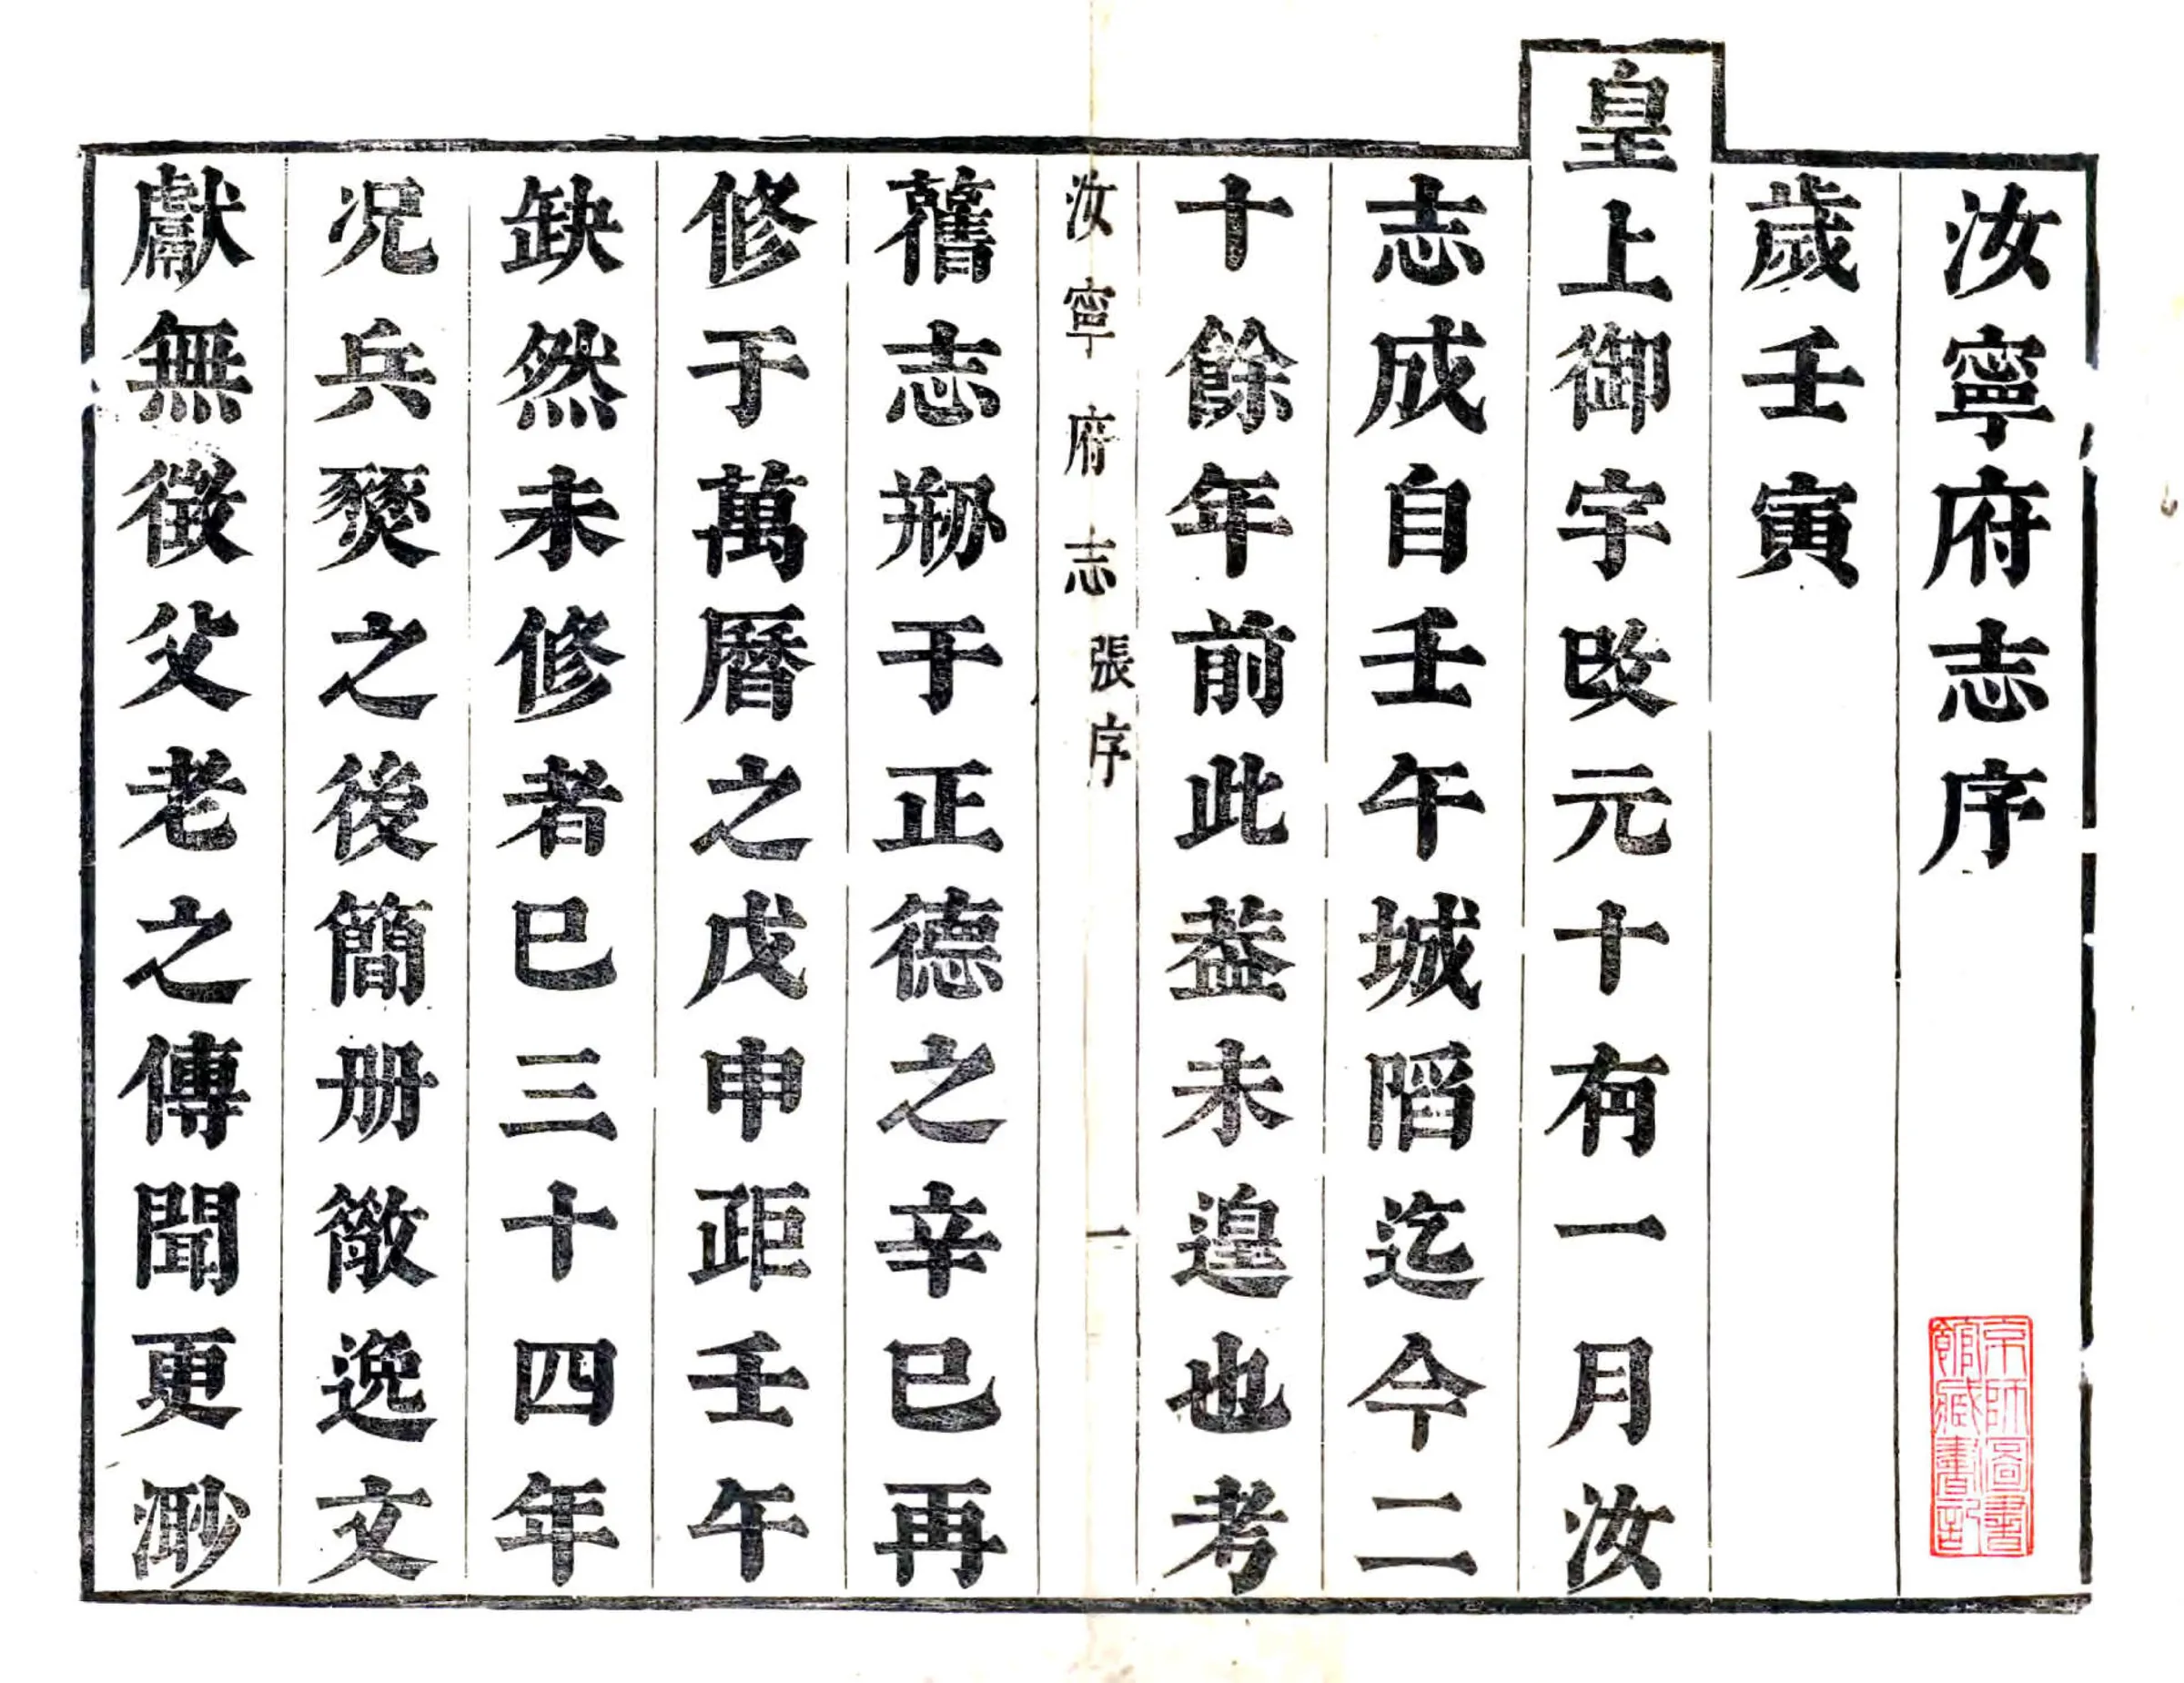 汝寧府志序
歲壬寅
皇上御宇改元十有一月汝
志成自壬午城陷迄今二
十餘年前此葢未遑也考
汝寧府志 張序 一
舊志剏于正德之辛巳再
修于萬曆之戊申距壬午
缺然未修者已三十四年
况兵燹之後簡册散逸文
獻無徵父老之傳聞更渺
京師圖書
館藏書記